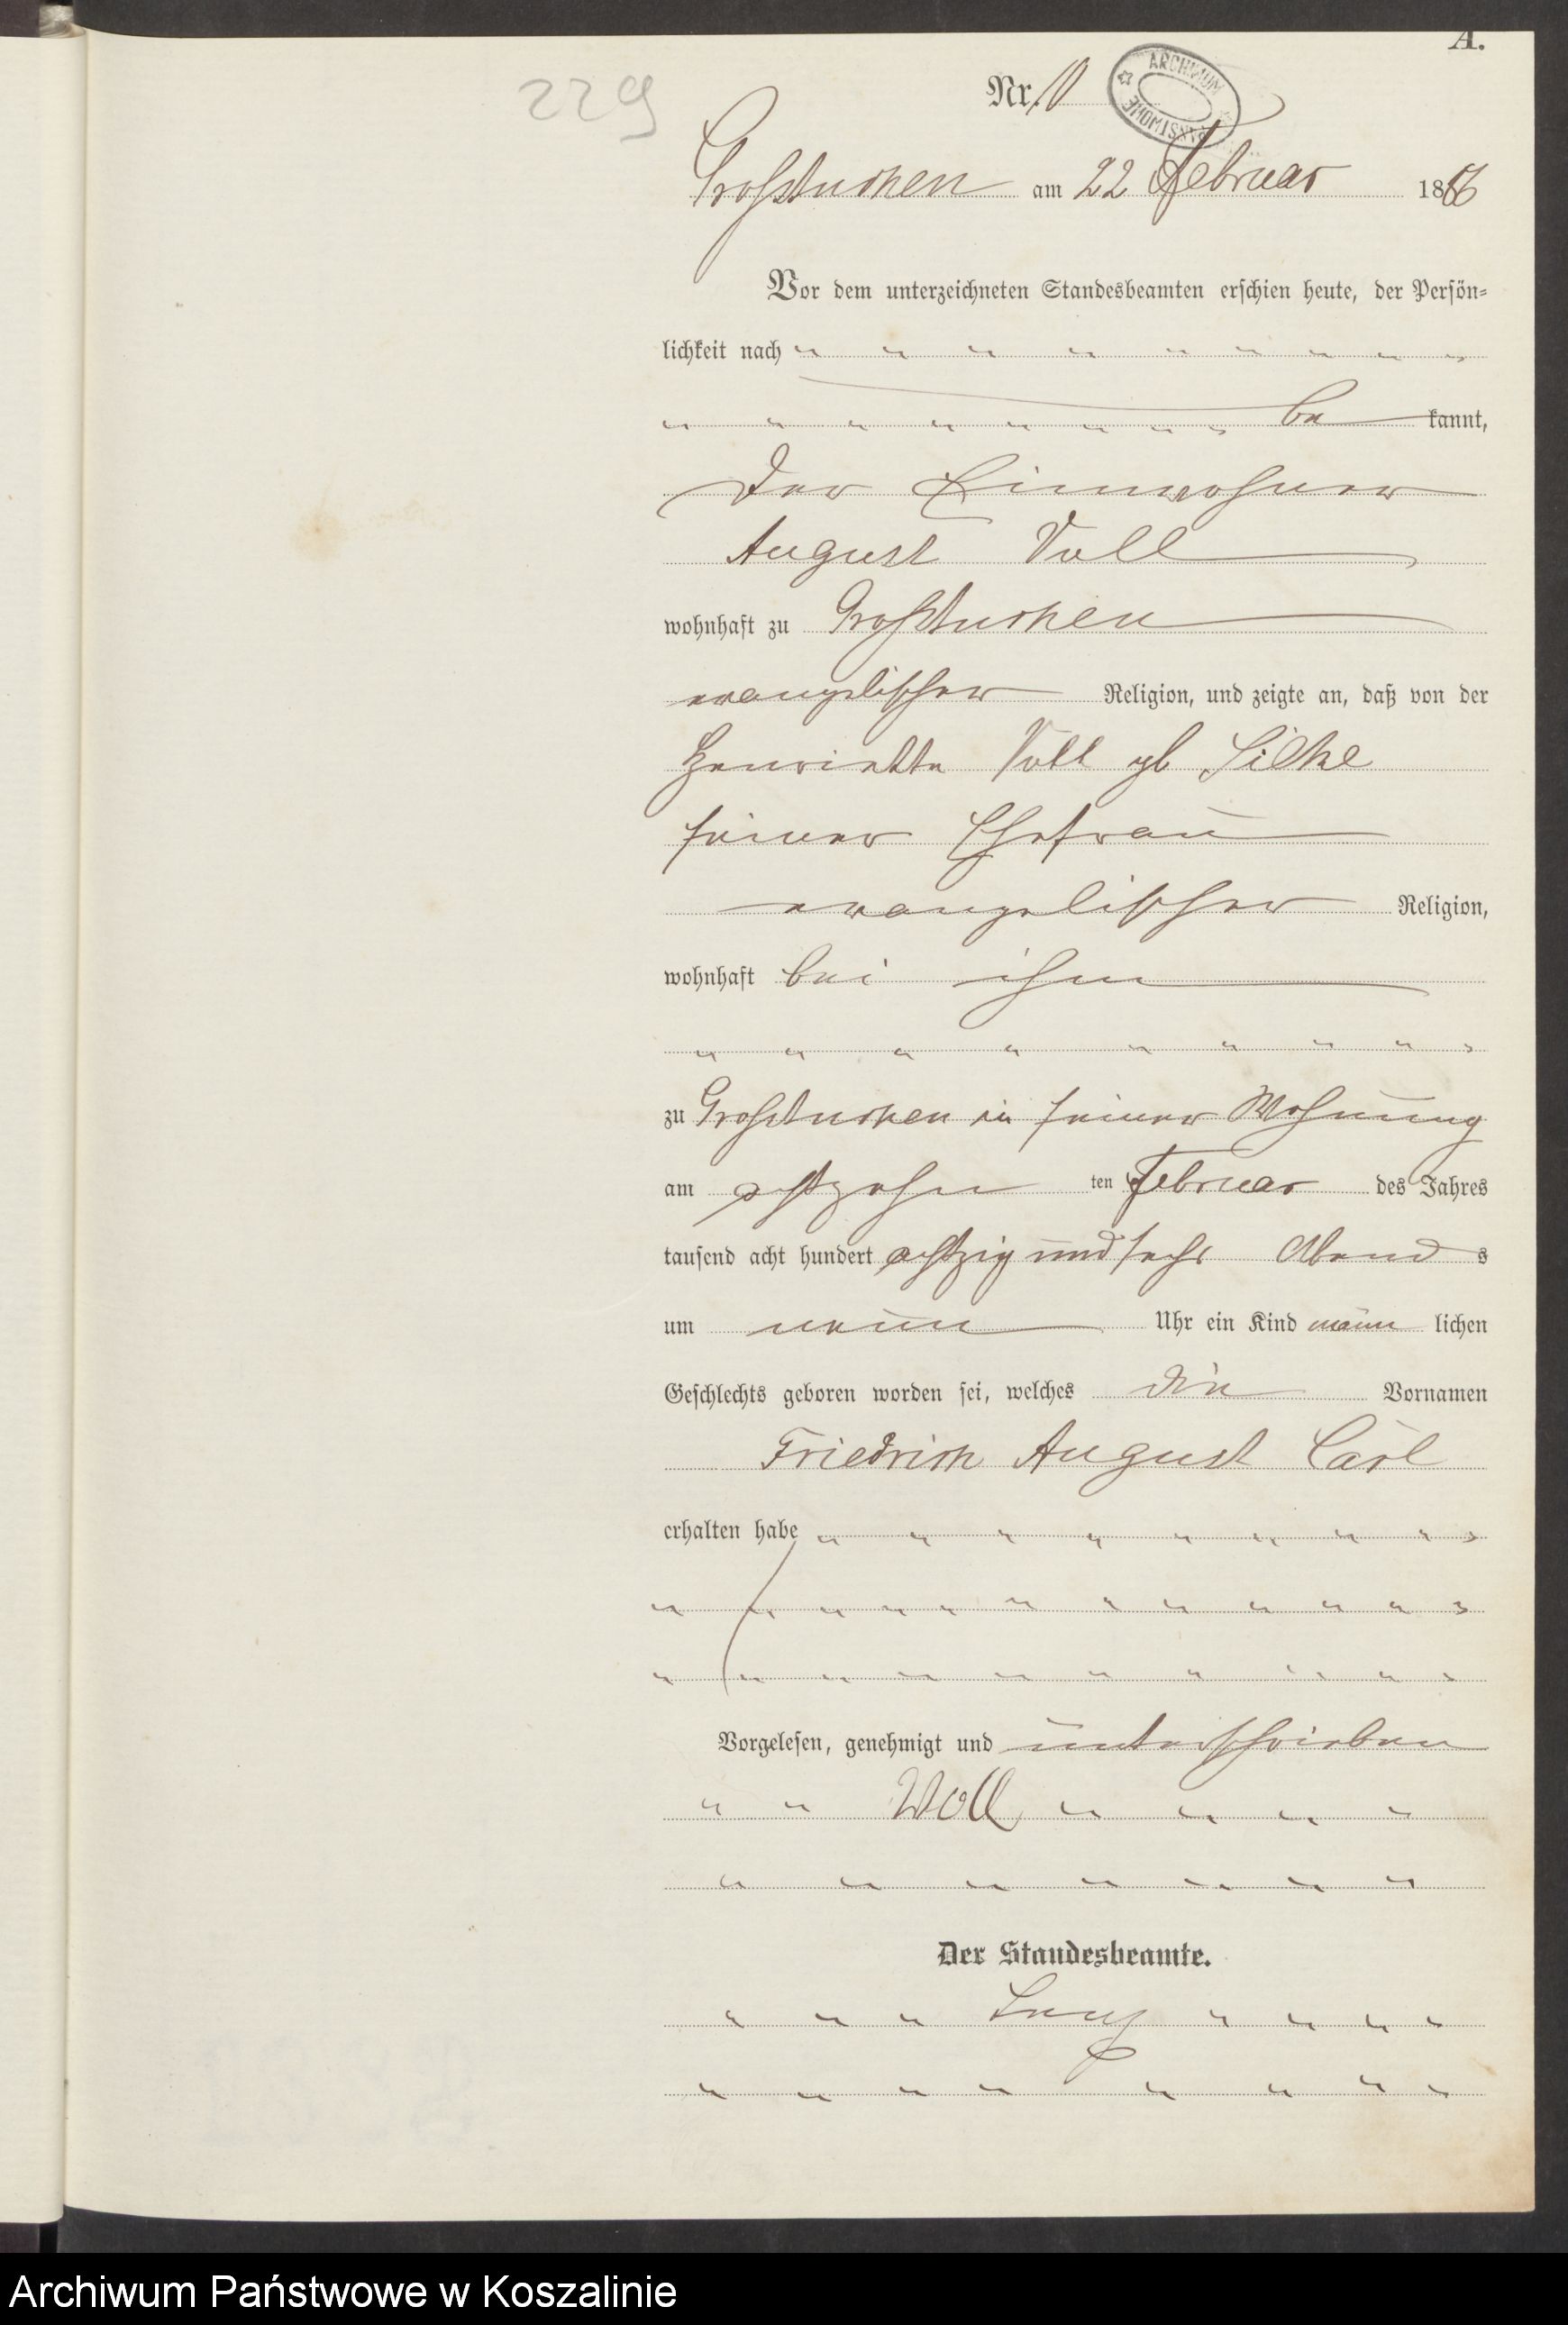 A.
229
Nr. 10
ARCHIWUM PAŃSTWOWE
Großtuchen am 22 Februar 1886
Vor dem unterzeichneten Standesbeamten erschien heute, der Persön-
lichkeit nach " " " " " " " " "
" " " " " " " " be kannt,
der Einwohner
August Voll
wohnhaft zu Großtuchen
evangelischer Religion, und zeigte an, daß von der
Henriette Voll gb Silke
seiner Ehefrau
evangelischer Religion,
wohnhaft bei ihm
" " " " " " " " "
zu Großtuchen in seiner Wohnung
am achtzehn ten Februar des Jahres
tausend acht hundert achtzig und sechs Abend s
um neun Uhr ein Kind männ lichen
Geschlechts geboren worden sei, welches die Vornamen
Friedrich August Carl
erhalten habe " " " " " " " " "
" " " " " " " " " " " "
" " " " " " " " " "
Vorgelesen, genehmigt und unterschrieben
" " Woll " " " "
" " " " " " "
Der Standesbeamte.
" " " " " " "
" " " " " " " "
Archiwum Państwowe w Koszalinie